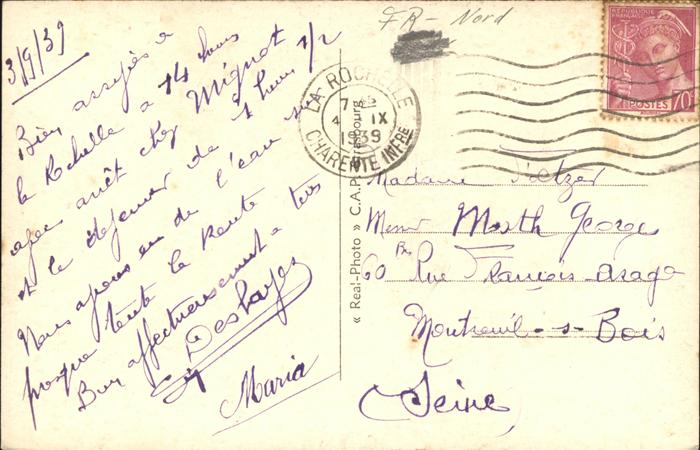 3/9/39
Bien arrivés à
la Rochelle a 14 heures
avec arrêt chez Mignot
et le déjeuner de 1 heure 1/2
Nous avons eu de l'eau
presque toute la route
Bien affectueusement a tous
Deshayes
Maria
FR - Nord
REPUBLIQUE FRANÇAISE
70c
POSTES
LA ROCHELLE
7
4 IX
1939
CHARENTE INFRE
« Real-Photo » C.A.P.
Madame
Mme Georges
60 Bis Rue François-Arago
Montreuil-s-Bois
Seine